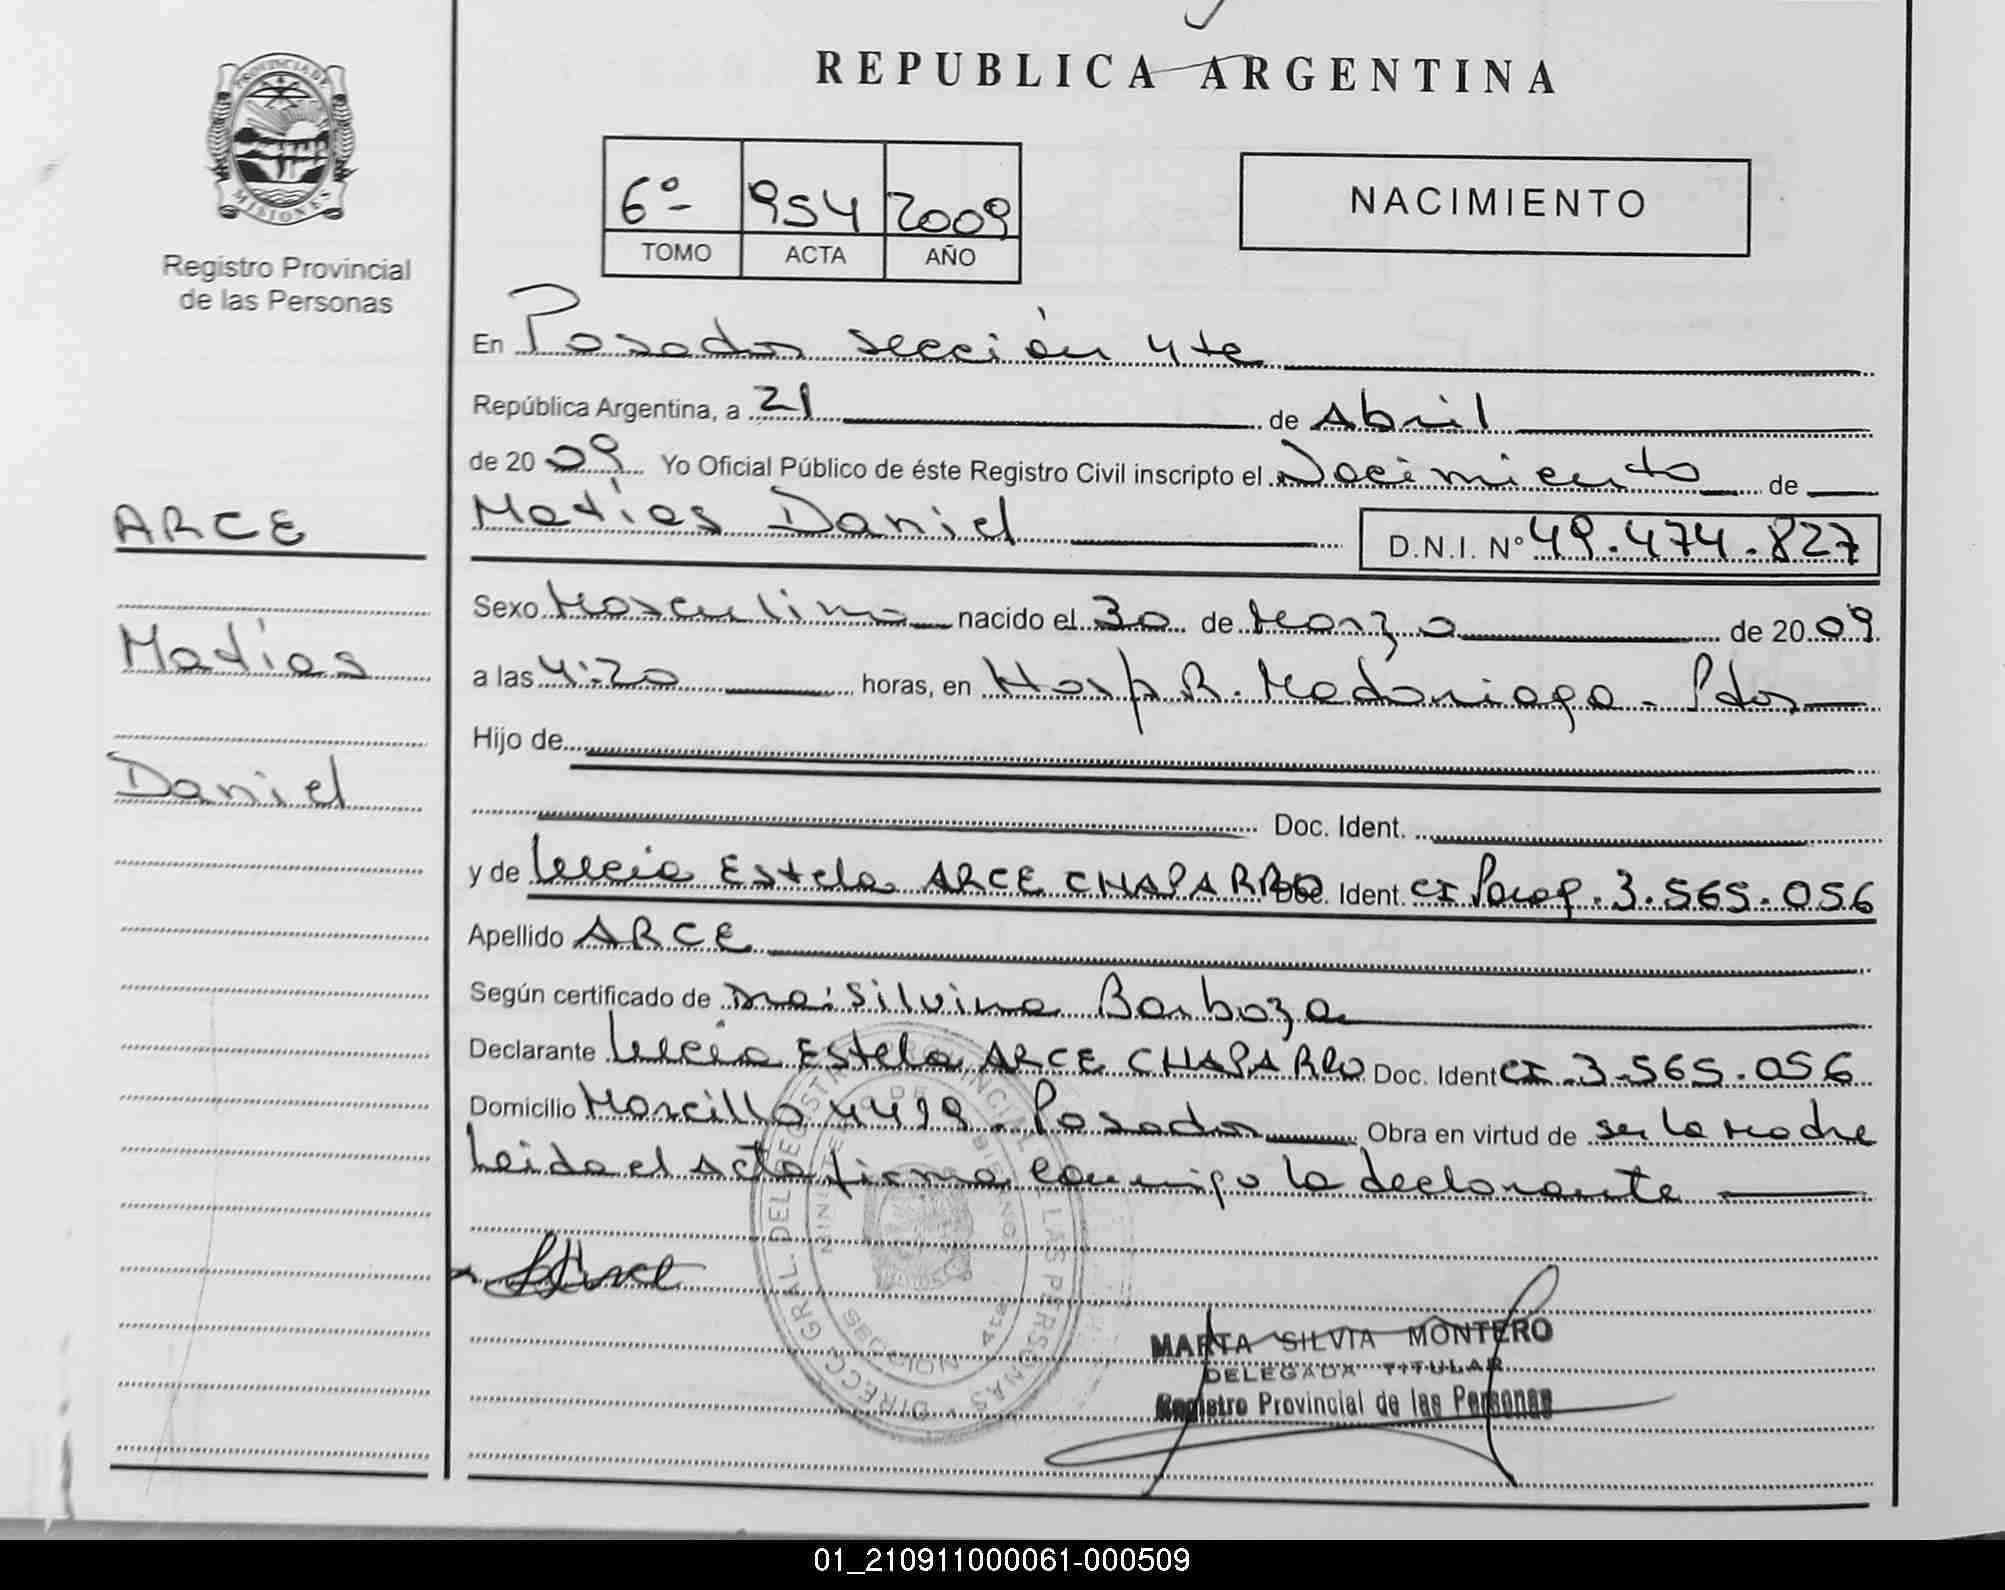 REPUBLICA ARGENTINA
PROVINCIA DE
MISIONES
Registro Provincial
de las Personas
6º 954 2009
TOMO ACTA AÑO
NACIMIENTO
En Posadas sección 4ta
República Argentina, a 21 de Abril
de 2009 Yo Oficial Público de éste Registro Civil inscripto el Nacimiento de
Matías Daniel D.N.I. Nº 49.474.827
ARCE
Matías
Daniel
Sexo Masculino nacido el 30 de Marzo de 2009
a las 4:20 horas, en Hosp R. Madariaga - Pdas
Hijo de
Doc. Ident.
y de Lucia Estela ARCE CHAPARRO Doc. Ident. CI Parag. 3.565.056
Apellido ARCE
Según certificado de Dra: Silvina Barboza
Declarante Lucia Estela ARCE CHAPARRO Doc. Ident CI. 3.565.056
Domicilio 4419 - Posadas Obra en virtud de ser la Madre
Leida el Acta firma conmigo la declarante
DIRECC. GRAL. DEL REGISTRO PROVINCIAL DE LAS PERSONAS
MINISTERIO DE GOBIERNO
SECCION 4ta
MARTA SILVIA MONTERO
DELEGADA TITULAR
Registro Provincial de las Personas
01_210911000061-000509